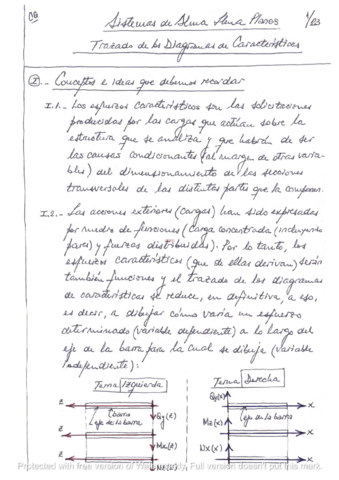 Sistemas de Alma Llena Planos 1/23
Trazado de los Diagramas de Características
I.- Conceptos e ideas que debemos recordar
I.1.- Los esfuerzos característicos son las solicitaciones
producidas por las cargas que actúan sobre la
estructura que se analiza y que habrán de ser
las causas condicionantes (al margen de otras varia-
bles) del dimensionamiento de las secciones
transversales de las distintas partes que la componen.
I.2.- Las acciones exteriores (cargas) han sido expresadas
por medio de funciones (carga concentrada (incluyendo
pares) y fuerzas distribuidas). Por lo tanto, los
esfuerzos característicos (que de ellas derivan) serán
también funciones y el trazado de los diagramas
de características se reduce, en definitiva, a eso,
es decir, a dibujar cómo varía un esfuerzo
determinado (variable dependiente) a lo largo del
eje de la barra para la cual se dibuja (variable
independiente):
Terna Izquierda Terna Derecha
z barra Qy(z) Qy(x) x
eje de la barra eje de la barra
z Mx(z) Mz(x) x
z Nz(z) Nx(x) x
Protected with free version of Watermarkly. Full version doesn't put this mark.